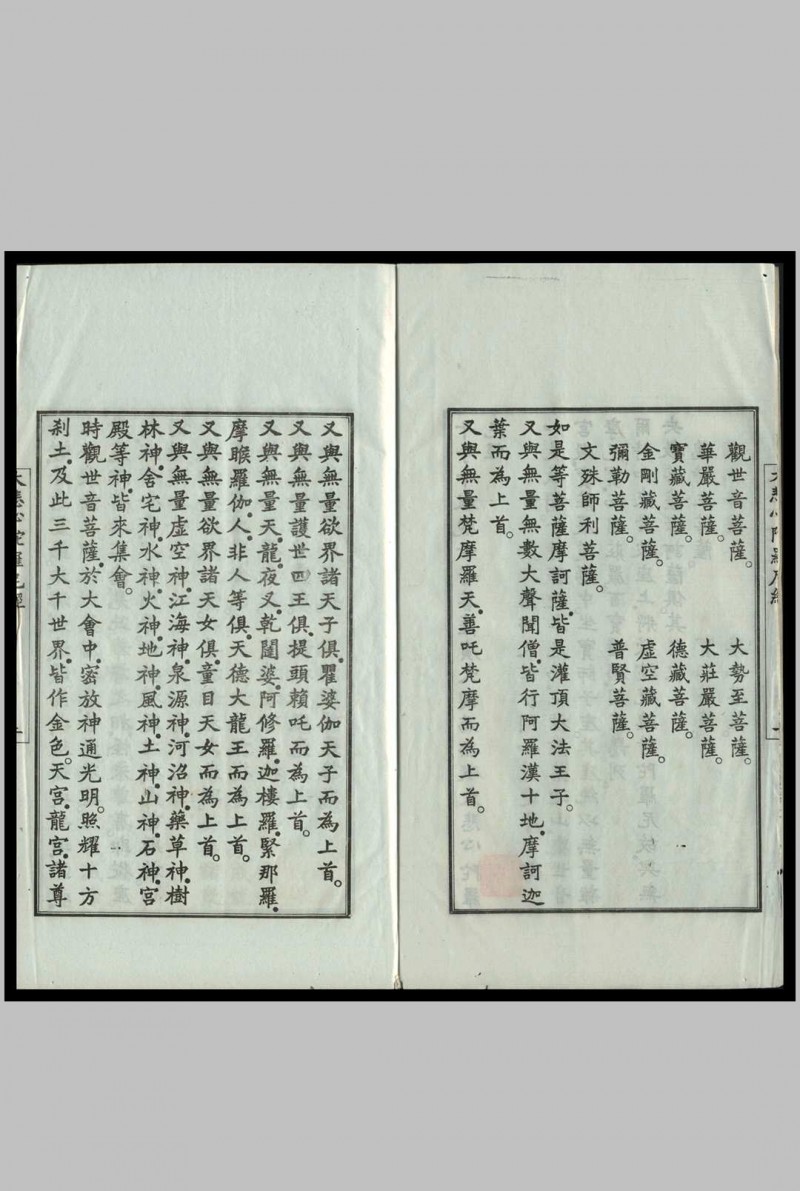 觀世音菩薩。　大勢至菩薩。
華嚴菩薩。　大莊嚴菩薩。
寶藏菩薩。　德藏菩薩。
金剛藏菩薩。　虛空藏菩薩。
彌勒菩薩。　普賢菩薩。
文殊師利菩薩。
如是等菩薩摩訶薩。皆是灌頂大法王子。
又與無量無數大聲聞僧。皆行阿羅漢十地。摩訶迦
葉而為上首。
又與無量梵摩羅天。善吒梵摩而為上首。
又與無量欲界諸天子俱。瞿婆伽天子而為上首。
又與無量護世四王俱。提頭賴吒而為上首。
又與無量天。龍。夜叉。乾闥婆。阿修羅。迦樓羅。緊那羅。
摩睺羅伽。人。非人等俱。天德大龍王而為上首。
又與無量欲界諸天女俱。童目天女而為上首。
又與無量虛空神。江海神。泉源神。河沼神。藥草神。樹
林神。舍宅神。水神。火神。地神。風神。土神。山神。石神。宮
殿等神。皆來集會。
時觀世音菩薩。於大會中。密放神通光明。照耀十方
剎土。及此三千大千世界。皆作金色。天宮。龍宮。諸尊